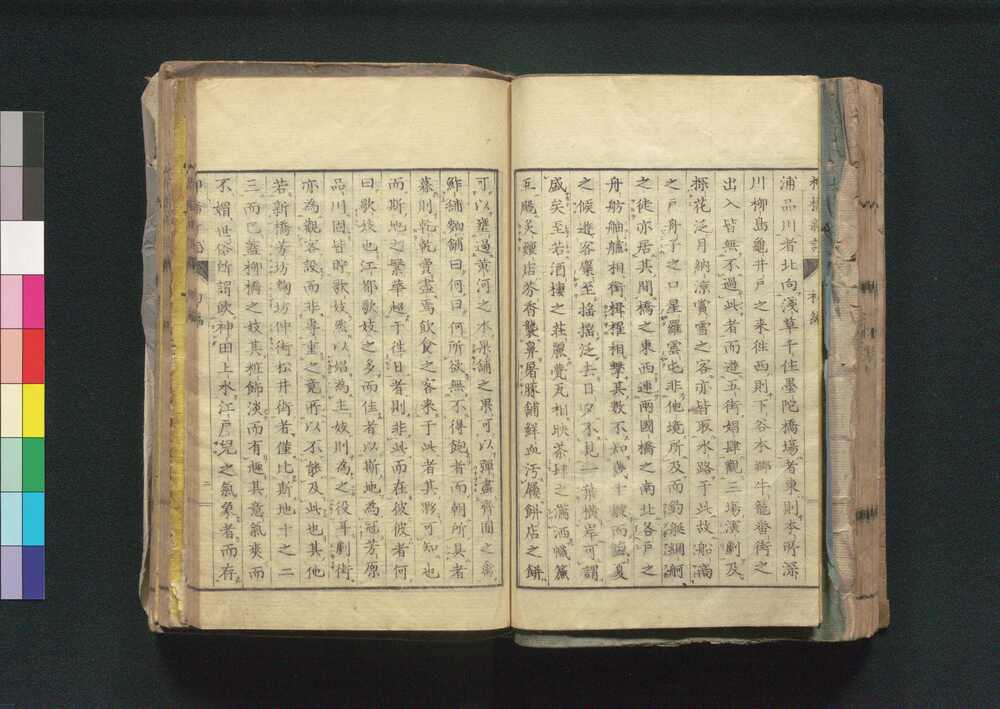 柳橋新誌 初編
浦品川者北向淺草千住墨陀橋場者東則本所深
川柳島龜井戸之来徃西則下谷本郷牛籠番街之
出入皆無不過此者而遊五街娼肆觀三場演劇及
探花泛月納涼賞雪之客亦皆取水路于此故船商
之戸舟子之口星羅雲屯非他境所及而釣艇網舸
之徒亦居其間橋之東西連兩國橋之南北各戸之
舟舫舳艫相銜楫櫂相擊其數不知幾千艘而盛夏
之候遊客麕至搖搖泛去日夕不見一葉橫岸可謂
盛矣至若酒樓之莊麗甍瓦相映茶肆之瀟洒
互
炙鰻店芬香襲鼻屠豚鋪鮮血汚屨餅店之餅
可以
過黄河之水果鋪之果可以彈盡齊間之禽
鮓鋪麵鋪曰何曰何所欲無不得飽者而朝所具者
暮則乾乾賣盡焉飲食之客来于此者其夥可知也
而斯地之繁華超于徃日者則非此而在彼彼者何
曰歌妓也江都歌妓之多而佳者以斯地為冠芳原
品川固皆貯歌妓然以娼為主妓則為之役耳劇街
亦為觀客設而非專重之竟所以不能及此也其他
若新橋芳坊麴坊仲街松井街者僅比斯地十之二
三而已蓋柳橋之妓其粧飾淡而有趣其意氣爽而
不媚世俗所謂飲神田上水江戸兒之氣象者而存